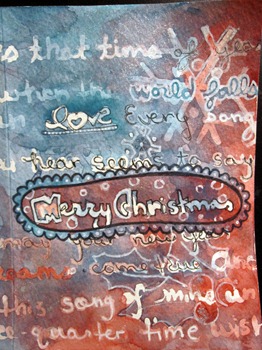 is that time of year
when the world falls
in love Every song
u hear seems to say
Merry Christmas
may your new year
dreams come true and
this song of mine in
quarter time wish